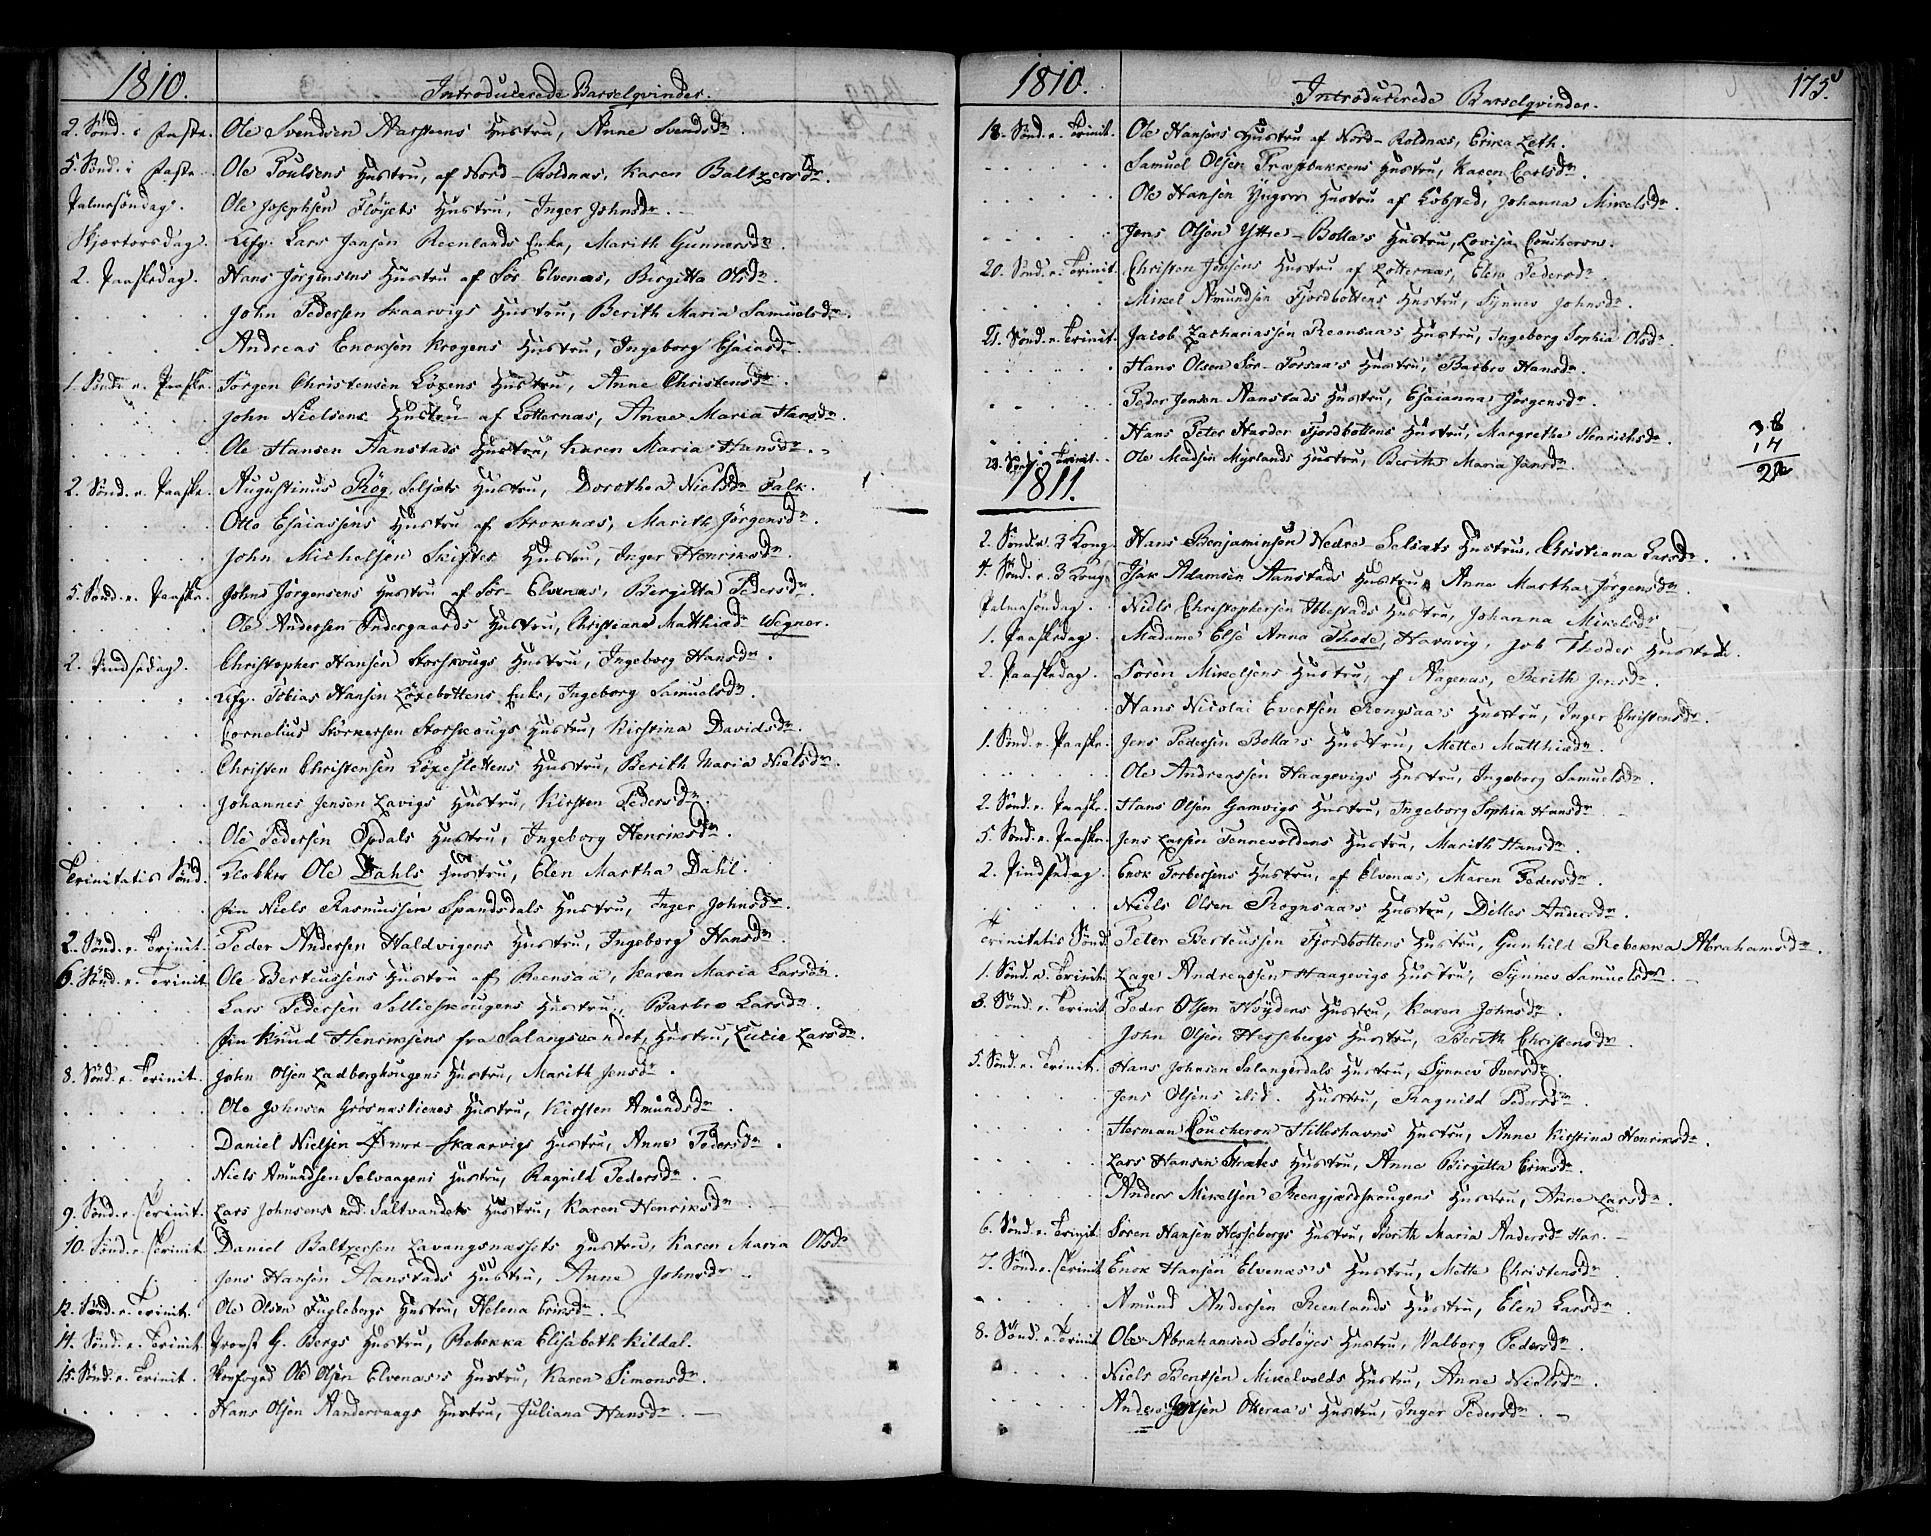 1810.
Introducerede Barselqvinder.
2. Sönd. i Faste. Ole Svendsen Aarsteens Hustru, Anne Svendsdr.
5. Sönd. i Faste. Ole Poulsens Hustru, af Nord-Roldnæs, Karen Baltzersdr.
Palmesöndag. Ole Josephsen Flöyets Hustru, Inger Johnsdr.
Skjertorsdag. Afg. Lars Jansen Reenlands Enke, Marith Gunnersdr.
2. Paaskedag. Hans Jörgensens Hustru af Sör-Elvenæs, Birgitta Olsdr.
John Pedersen Skaarvigs Hustru, Berith Maria Samuelsdr.
Andreas Enoksen Krogens Hustru, Ingeborg Esaiasdr.
1. Sönd. e. Paaske. Jörgen Christensen Löxens Hustru, Anne Christensdr.
John Nielsens Hustru af Lotternæs, Anne Maria Hansdr.
Ole Hansen Aanstads Hustru, Karen Maria Hansdr.
2. Sönd. e. Paaske. Augustinus Róg Seljæts Hustru, Dorothea Nielsdr Falk.
Otto Esaiassens Hustru af Stroknæs, Marith Jörgensdr.
John Michelsen Skiftes Hustru, Inger Henriksdr.
5. Sönd. e. Paaske. Johns Jörgensens Hustru af Sör-Elvenæs, Birgitta Pedersdr.
Ole Andersen Indergaards Hustru, Christiane Matthiædr Wegner.
2. Pindsedag. Christopher Hansen Storskougs Hustru, Ingeborg Hansdr.
Afg. Tobias Hansen Löxebottens Enke, Ingeborg Samuelsdr.
Cornelius Störkersen Storskougs Hustru, Kirstina Davidsdr.
Christen Christensen Löxeslettens Hustru, Berith Maria Nielsdr.
Johannes Jensen Lavigs Hustru, Kirsten Pedersdr.
Ole Pedersen Opdals Hustru, Ingeborg Henriksdr.
Trinitatis Sönd. Klokker Ole Dahls Hustru, Elen Martha Dahl.
Fin Niels Rasmussen Spandsdals Hustru, Inger Johnsdr.
2. Sönd. e. Trinit. Peder Andersen Haldvigens Hustru, Ingeborg Hansdr.
6. Sönd. e. Trinit. Ole Berteussens Hustru af Reensaa, Karen Maria Larsdr.
Lars Pedersen Sellieskougens Hustru, Barbro Larsdr.
Fin Knud Henriksens fra Salangsvandet, Hustru, Lucie Larsdr.
8. Sönd. e. Trinit. John Olsen Ladberghougens Hustru, Marith Jensdr.
Ole Johnsen Grösnæslienes Hustru, Kirsten Amundsdr.
Daniel Nielsen Övre-Skaarvigs Hustru, Anne Pedersdr.
Niels Amundsen Selvaagens Hustru, Ragnild Pedersdr.
9. Sönd. e. Trinit. Lars Johnsens ved Saltvandets Hustru, Karen Henriksdr.
10. Sönd. e. Trinit. Daniel Baltzersen Lavangsnæssets Hustru, Karen Maria Olsdr.
Jens Hansen Aanstads Hustru, Anne Johnsdr.
12. Sönd. e. Trinit. Ole Olsen Fuglebergs Hustru, Helena Eriksdr.
14. Sönd. e. Trinit. Provst G. Bergs Hustru, Rebekka Elisabeth Kildal.
15. Sönd. e. Trinit. Kongsfoged Ole Olsen Elvenæs's Hustru, Karen Simonsdr.
Hans Olsen Aandervaags Hustru, Juliana Hansdr.
1810.
Introducerede Barselqvinder.
175.
18. Sönd. e. Trinit. Ole Hansens Hustru af Nord-Roldnæs, Erika Leth.
Samuel Olsen Trastbakkens Hustru, Karen Carlsdr.
Ole Hansen Yngres Hustru af Löbsted, Johanna Mikelsdr.
Jens Olsen Yttre-Bolla's Hustru, Lovisa Coucheron.
20. Sönd. e. Trinit. Christen Johnsens Hustru af Lotternæs, Elen Pedersdr.
Mikel Amundsen Fjordbottens Hustru, Synnev Johnsdr.
21. Sönd. e. Trinit. Jacob Zachariassen Reensaa's Hustru, Ingeborg Sophia Olsdr.
Hans Olsen Sör-Forsaa's Hustru, Barbro Hansdr.
Peder Jensen Aanstads Hustru, Esaianna Jörgensdr.
Hans Peter Harder Fjordbottens Hustru, Margrethe Henrichsdr.
38
14
23. Sönd. e. Trinit. Ole Madsen Myrlands Hustru, Berith Maria Jansdr.
1811.
2. Sönd. e. 3 Kong. Hans Benjaminsen Nedre-Selsæts Hustru, Christiana Larsdr.
4. Sönd. e. 3 Kong. Isak Adamsen Aanstads Hustru, Anne Martha Jörgensdr.
Palmesöndag. Niels Christophersen Ibbestads Hustru, Johanna Mikelsdr.
1. Paaskedag. Madame Else Anna Thode, Havnvig, Job Thodes Hustru.
2. Paaskedag. Sören Mikelsens Hustru, af Aagenæs, Berith Jensdr.
Hans Nicolai Evertsen Rongsaa's Hustru, Inger Christensdr.
1. Sönd. e. Paaske. Jens Pedersen Bolla's Hustru, Mette Matthiædr.
Ole Andreassen Haagevigs Hustru, Ingeborg Samuelsdr.
2. Sönd. e. Paaske. Hans Olsen Gamvigs Hustru, Ingeborg Sophia Hansdr.
5. Sönd. e. Paaske. Jens Larsen Tennevoldens Hustru, Marith Hansdr.
2. Pindsedag. Enok Torbersens Hustru, af Elvenæs, Maren Pedersdr.
Niels Olsen Rognsaa's Hustru, Dilles Andersdr.
Trinitatis Sönd. Peter Berteussen Fjordbottens Hustru, Gunhild Rebekka Abrahamsdr.
1. Sönd. e. Trinit. Lage Andreassen Haagevigs Hustru, Synnev Samuelsdr.
3. Sönd. e. Trinit. Peder Olsen Höydens Hustru, Karen Johnsdr.
John Olsen Hessebergs Hustru, Berith Christensdr.
5. Sönd. e. Trinit. Hans Johnsen Salangerdals Hustru, Synnev Iversdr.
Jens Olsens ibid. Hustru, Ragnild Pedersdr.
Herman Coucheron Hilleshavns Hustru, Anne Kirstina Henriksdr.
Lars Hansen Strætes Hustru, Anne Birgitta Eriksdr.
Anders Mikelsen Reengjærdskougens Hustru, Anne Larsdr.
6. Sönd. e. Trinit. Sören Hansen Hessebergs Hustru, Berith Maria Andersdr Har.
7. Sönd. e. Trinit. Enok Hansen Elvenæs's Hustru, Mette Christensdr.
Amund Andersen Reenlands Hustru, Elen Larsdr.
8. Sönd. e. Trinit. Ole Abrahamsen Solöyes Hustru, Walborg Pedersdr.
Niels Bentsen Mikelvolds Hustru, Anne Nielsdr.
Anders Olsen Otteraa's Hustru, Inger Pedersdr.